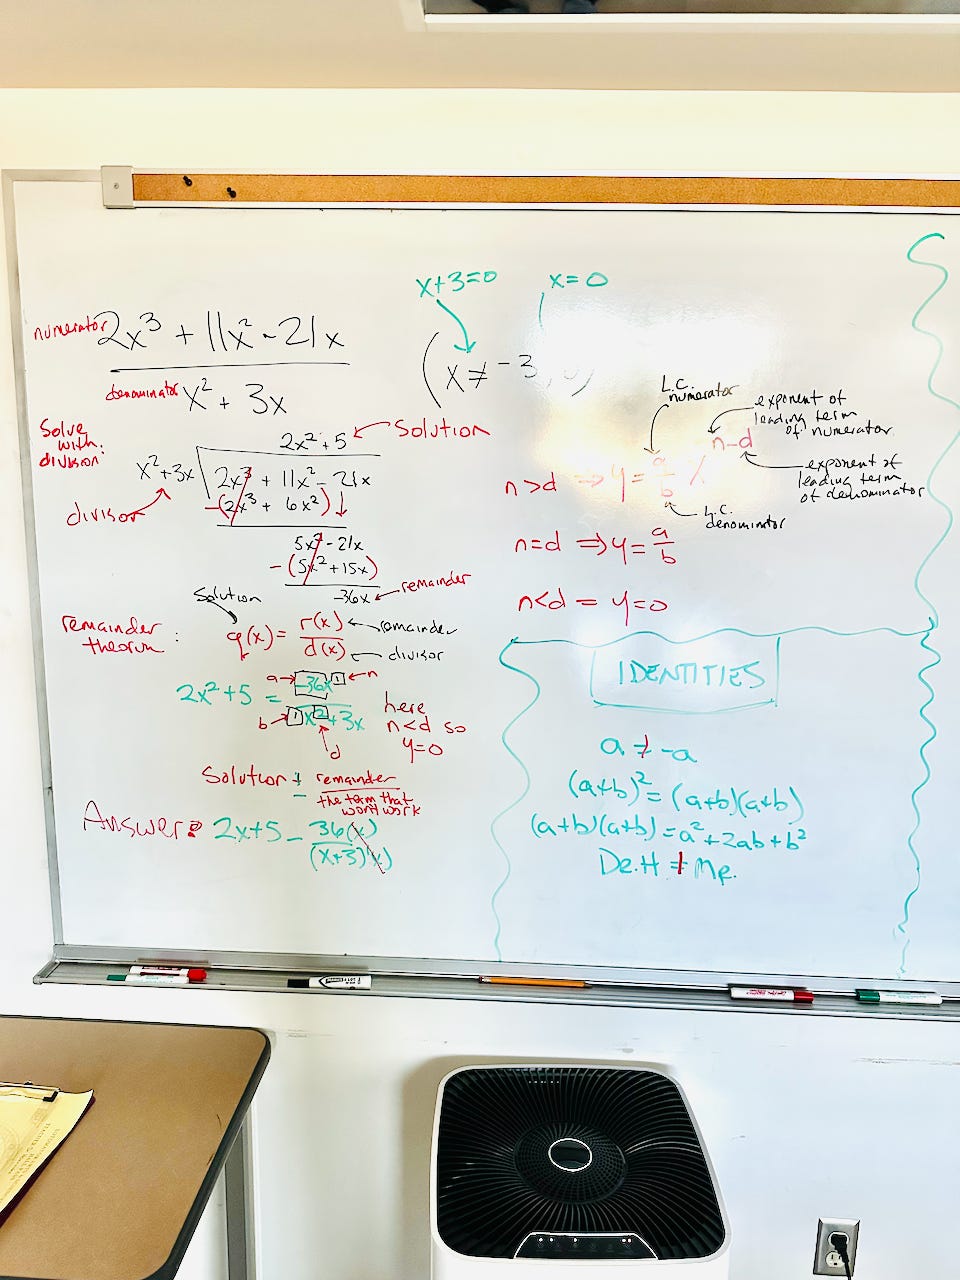 x+3=0 x=0
numerator 2x³ + 11x² - 21x
denominator x² + 3x
(x ≠ -3, 0)
Solve with division:
2x² + 5 ← Solution
x² + 3x 2x³ + 11x² - 21x
divisor
-(2x³ + 6x²) ↓
5x² - 21x
-(5x² + 15x)
-36x ← remainder
Solution
remainder theorum: q(x) = r(x)/d(x)
← remainder
← divisor
a → -36x¹ ← n
2x² + 5 =
b → 1x² + 3x
d
here
n<d so
y=0
Solution ± remainder
the term that
wont work
Answer: 2x+5 - 36(x)/(x+3)(x)
L.C.
numerator
exponent of
leading term
of numerator
n>d ⇒ y = a/b x n-d
exponent of
leading term
of denominator
L.C.
denominator
n=d ⇒ y = a/b
n<d = y=0
IDENTITIES
a ≠ -a
(a+b)² = (a+b)(a+b)
(a+b)(a+b) = a² + 2ab + b²
De.H ≠ Me.